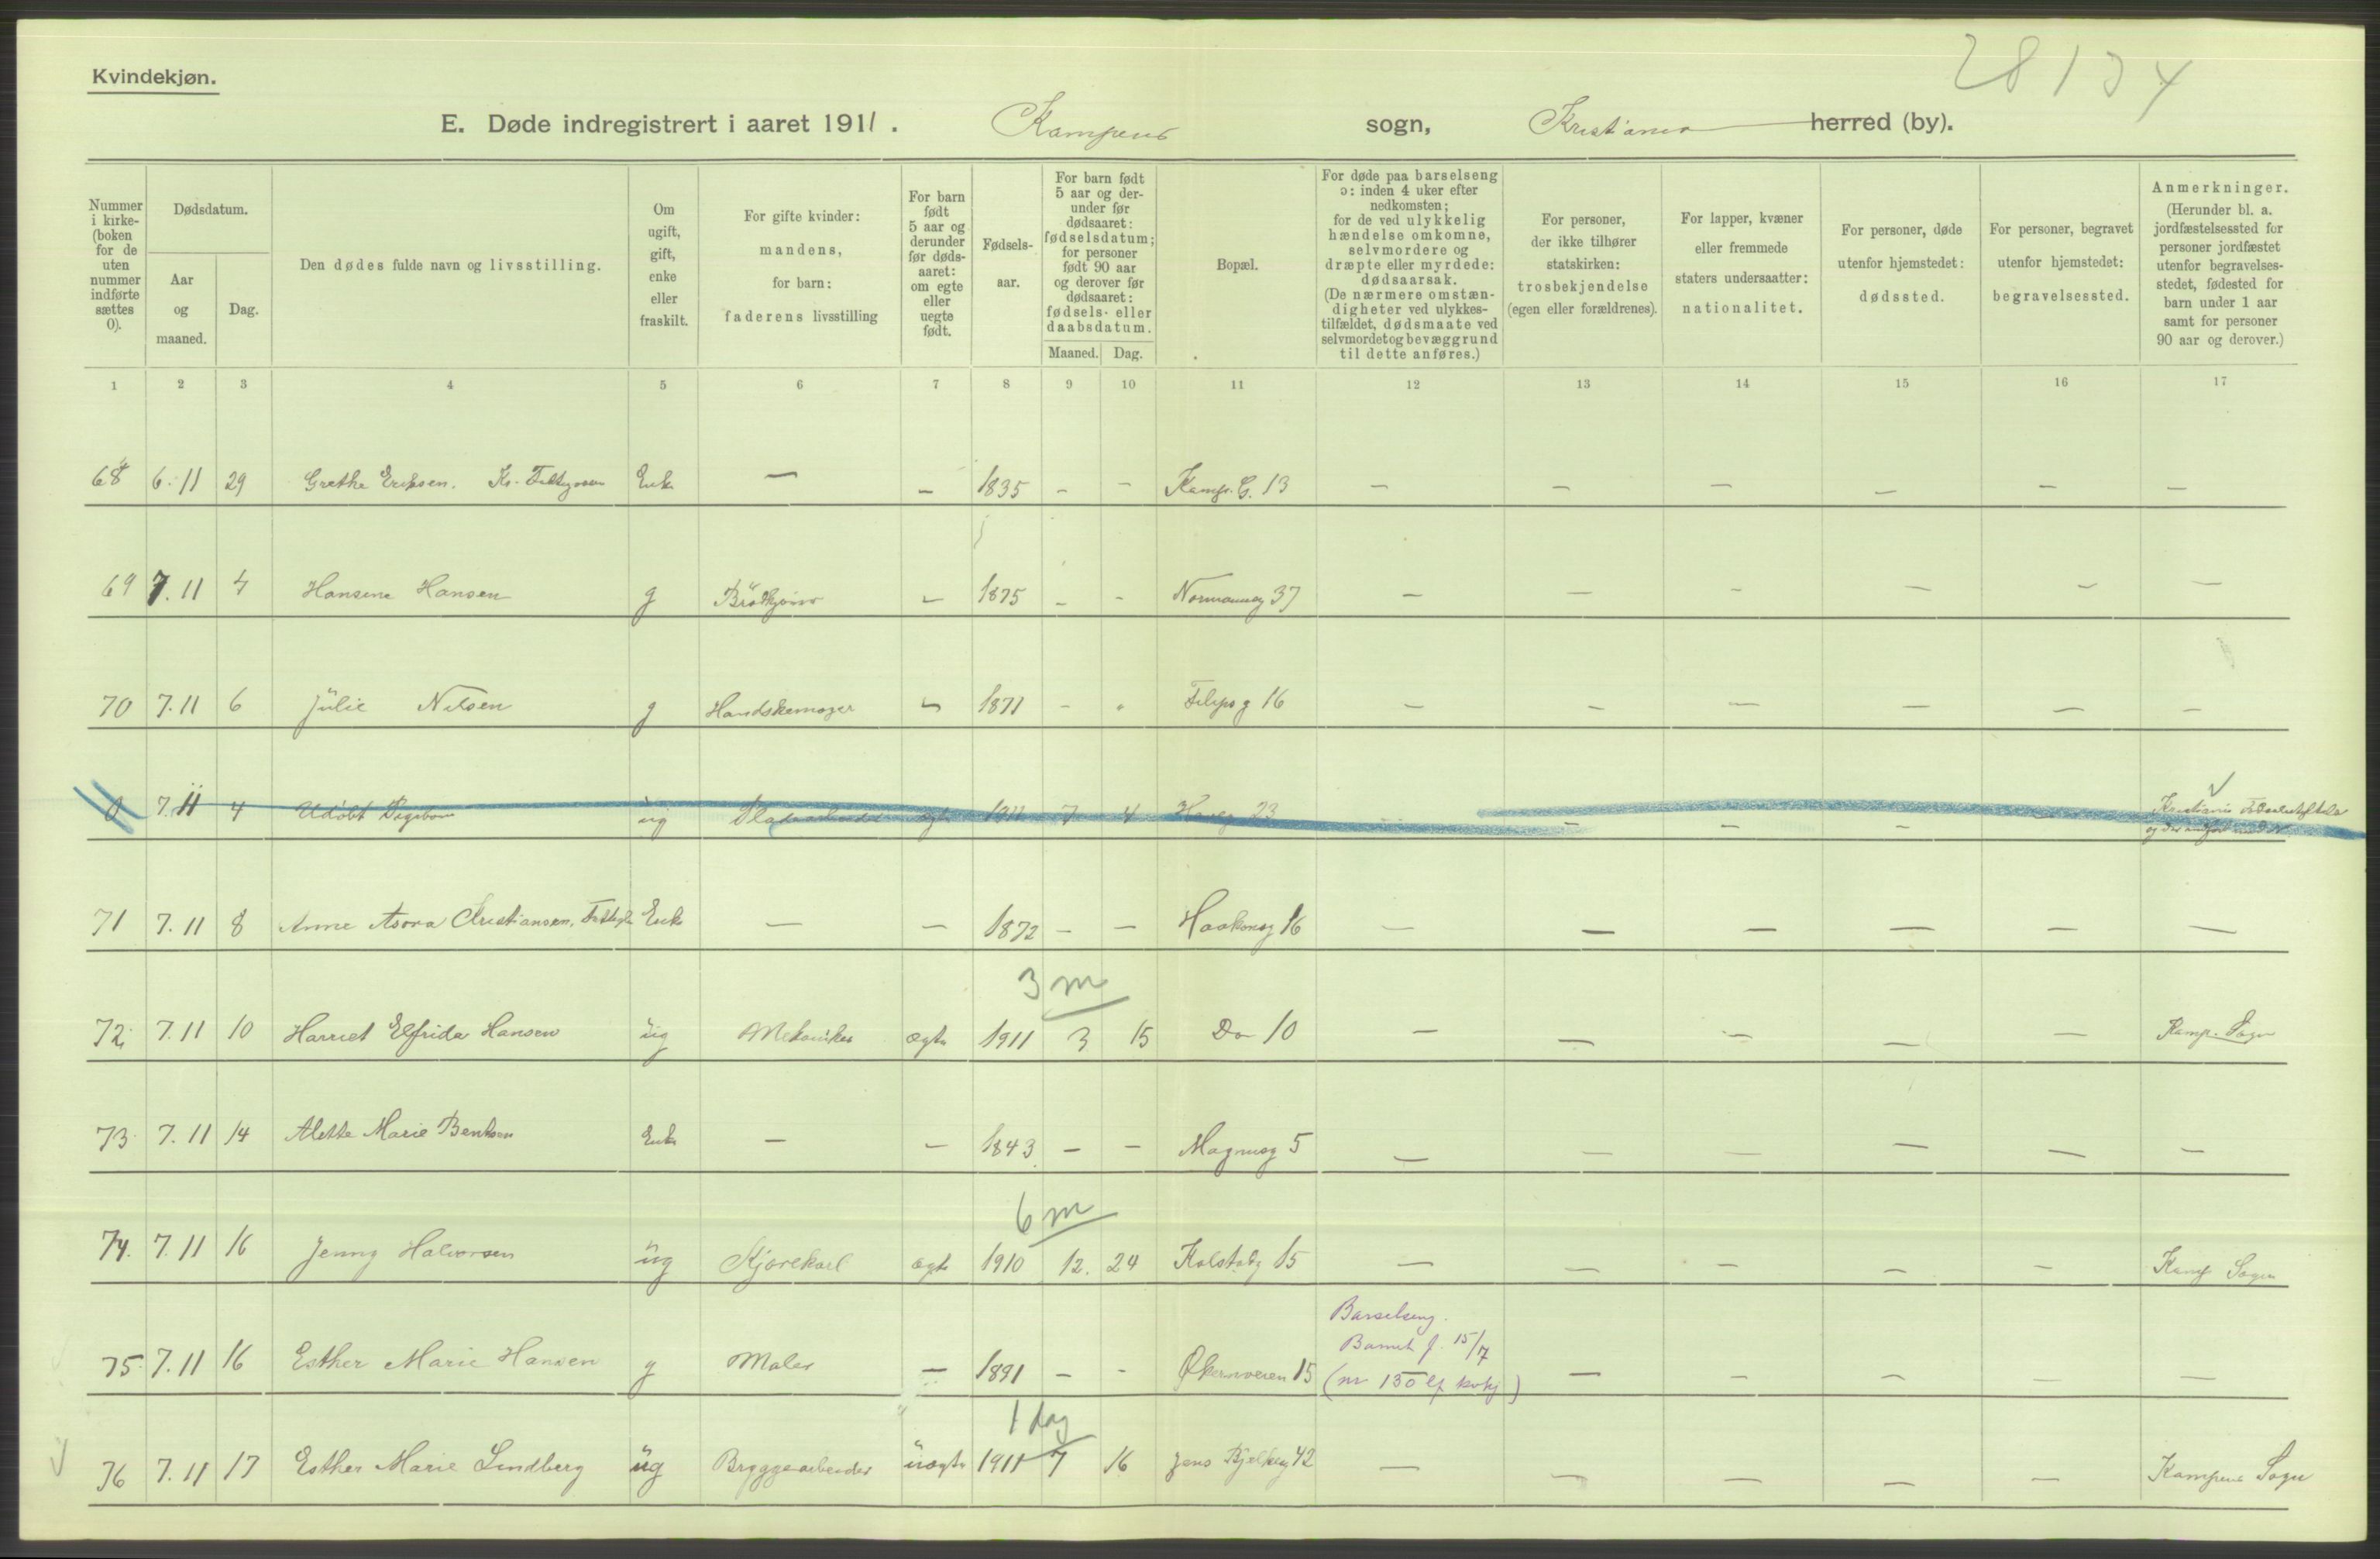 28134
Kvindekjøn.
E. Døde indregistrert i aaret 1911. Kampens sogn, Kristiania herred (by).
Nummer i kirke-(boken for de uten nummer indførte sættes 0).
Dødsdatum.
Aar og maaned.
Dag.
Den dødes fulde navn og livsstilling.
Om ugift, gift, enke eller fraskilt.
For gifte kvinder: mandens, for barn: faderens livsstilling
For barn født 5 aar og derunder før døds-aaret: om egte eller uegte født.
Fødsels-aar.
For barn født 5 aar og der-under før dødsaaret: fødselsdatum; for personer født 90 aar og derover før dødsaaret: fødsels- eller daabsdatum.
Maaned. Dag.
Bopæl.
For døde paa barselseng ɔ: inden 4 uker efter nedkomsten; for de ved ulykkelig hændelse omkomne, selvmordere og dræpte eller myrdede: dødsaarsak. (De nærmere omstæn-digheter ved ulykkes-tilfældet, dødsmaate ved selvmordet og bevæggrund til dette anføres.)
For personer, der ikke tilhører statskirken: trosbekjendelse (egen eller forældrenes).
For lapper, kvæner eller fremmede staters undersaatter: nationalitet.
For personer, døde utenfor hjemstedet: dødssted.
For personer, begravet utenfor hjemstedet: begravelsessted.
Anmerkninger. (Herunder bl. a. jordfæstelsessted for personer jordfæstet utenfor begravelses-stedet, fødested for barn under 1 aar samt for personer 90 aar og derover.)
1 2 3 4 5 6 7 8 9 10 11 12 13 14 15 16 17
68 6.11 29 Grethe Eriksen. Enke — — 1835 — — Kamp. G. 13 — — — — — —
69 7.11 4 Hansine Hansen g — 1875 — — Normanng 37 — — — — — —
70 7.11 6 Julie Nilsen g Handskemager — 1871 — — Filipsg 16 — — — — — —
0 7.11 4 Udøbt Pigebarn ug egte 1911 7 4 23 — — — — — Kristiania
71 7.11 8 Anne Asora Christiansen, Enke — — 1872 — — Haakonsg 16 — — — — — —
3 m
72. 7.11 10 Harriet Elfrida Hansen ug Mekaniker ægte 1911 3 15 Do 10 — — — — — Kamp. Sogn
73. 7.11 14 Alette Marie Bentsen Enke — — 1843 — — Magnusg 5 — — — — — —
6 m
74. 7.11 16 Jenny Halvorsen ug Kjørekarl ægte 1910 12. 24 Kolstadg 15 — — — — — Kamp Sogn
Barselseng.
Barnet f. 15/7
75. 7.11 16 Esther Marie Hansen g Maler — 1891 — — Økernveien 15 (nr 150 — — — — —
1 dag
76 7.11 17 Esther Marie Lindberg ug Bryggearbeider uægte 1911 7 16 Jens Bjelkeg 42 — — — — — Kampens Sogn